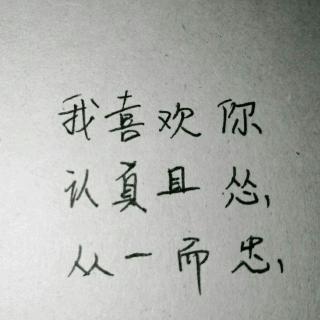 我喜欢你
认真且怂,
从一而忠,